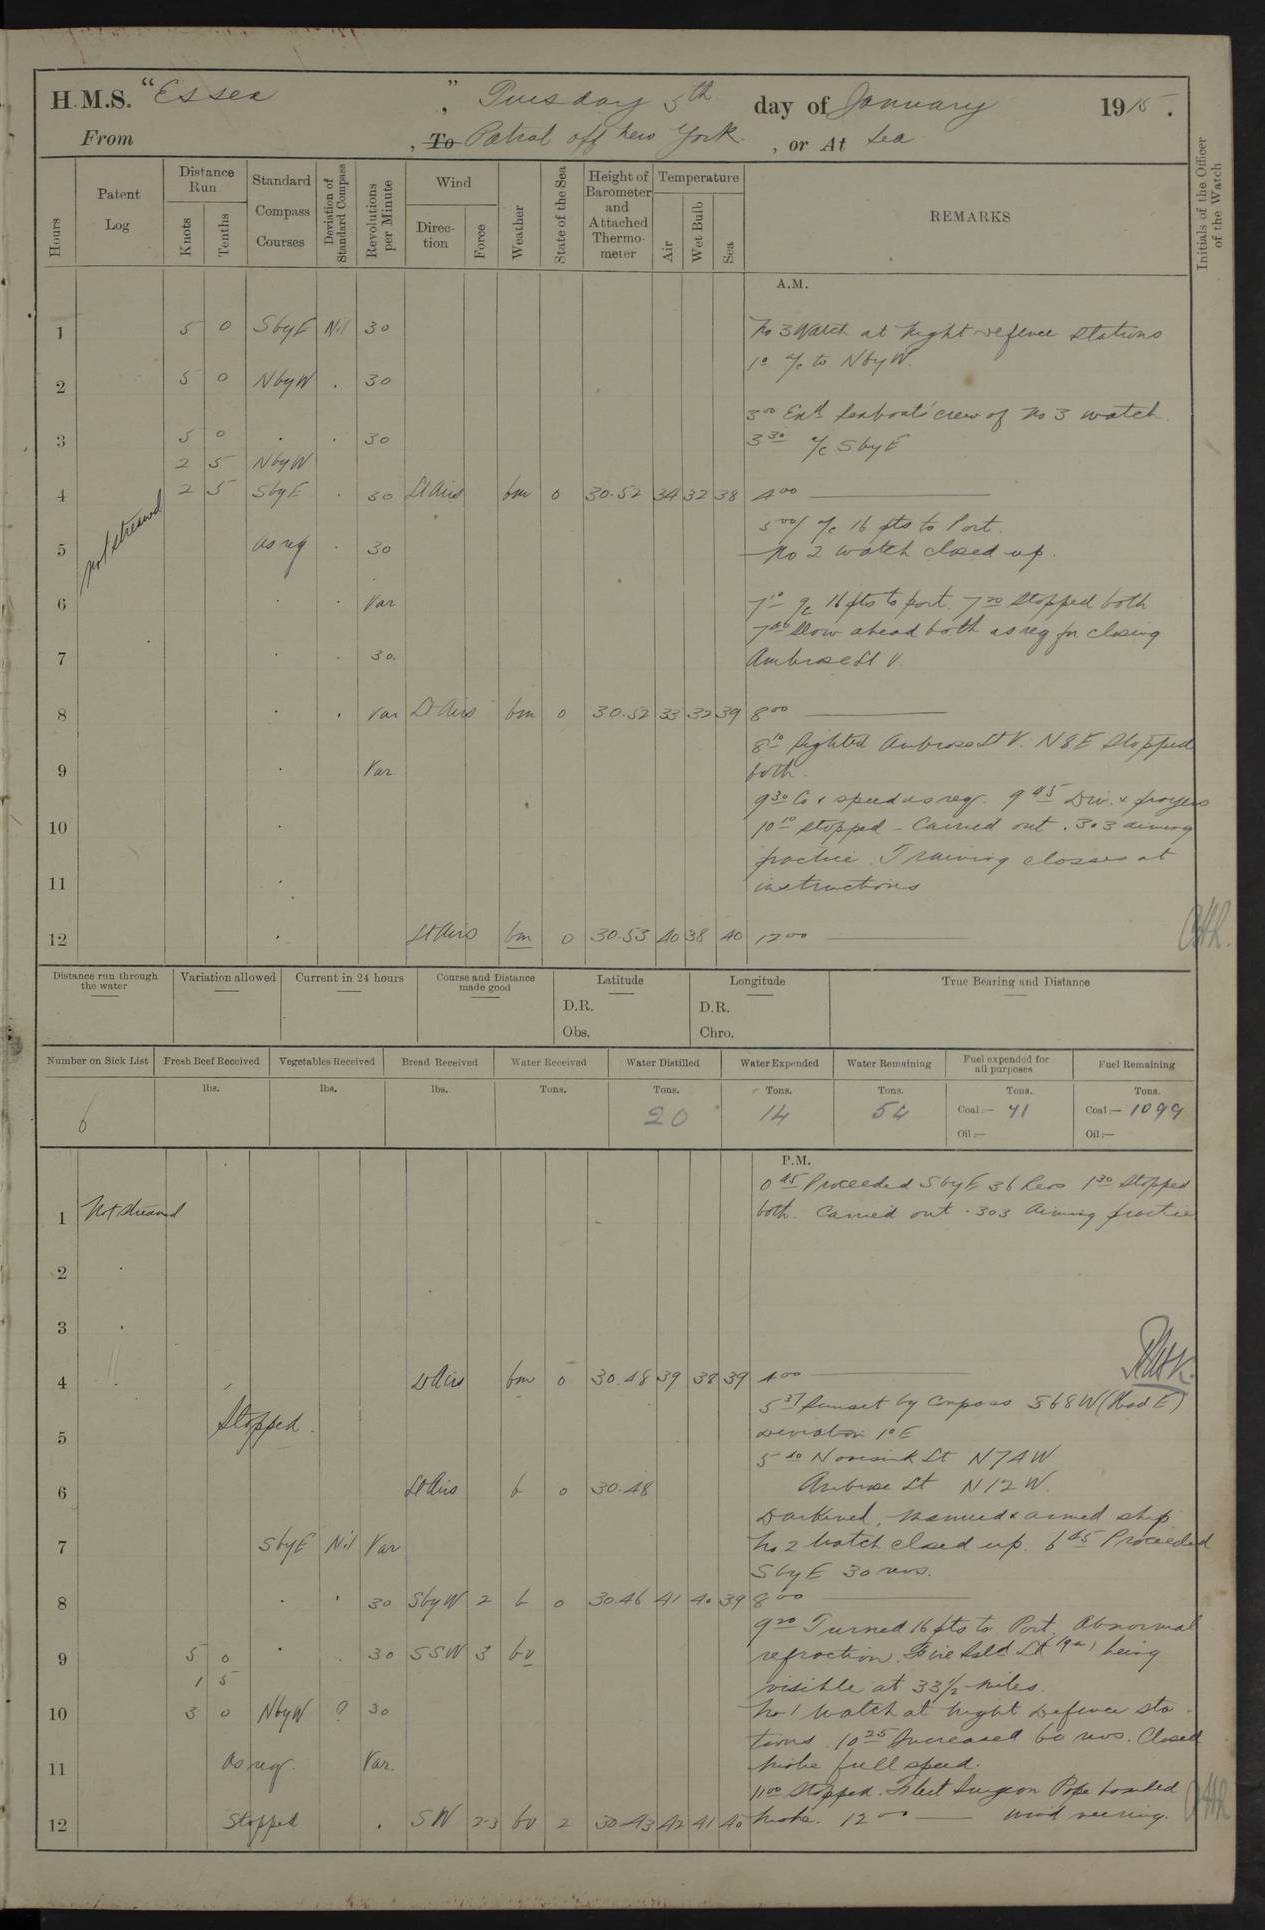 H.M.S. "Essex", Tuesday 5th day of January 1915.
From , To Patrol off New York , or At Sea
Hours
Patent Log
Distance Run
Knots
Tenths
Standard Compass Courses
Deviation of Standard Compass
Revolutions per Minute
Wind
Direction
Force
Weather
State of the Sea
Height of Barometer and Attached Thermometer
Temperature
Air
Wet Bulb
Sea
REMARKS
Initials of the Officer of the Watch
A.M.
1 5 0 SbyE Nil 30 No 3 Watch at Night defence Stations
1⁰ a/c to NbyW.
2 5 0 NbyW . 30
3⁰⁰ Exd Seaboats' crew of No 3 watch.
3 5 0 . . 30 3³⁰ a/c SbyE
2 5 NbyW
4 2 5 SbyE . 30 Lt Airs bm 0 30.52 34 32 38 4⁰⁰
not streamed
5⁰⁰ a/c 16 pts to Port.
5 as req . 30 No 2 watch closed up.
6 . . Var 7¹⁰ a/c 16 pts to port. 7²⁰ Stopped both
7⁴⁰ Slow ahead both as req for closing
7 . . 30. Ambrose Lt V.
8 . . Var Lt Airs bm 0 30.52 33 32 39 8⁰⁰
8¹⁰ Sighted Ambrose Lt V. N8E Stopped
9 . Var both
9³⁰ Co & speed as req. 9⁴⁵ Div. & prayers
10 . 10¹⁰ Stopped - Carried out .303 aiming
practice. Training classes at
11 . instructions
12 . Lt Airs bm 0 30.53 40 38 40 12⁰⁰
Distance run through the water
Variation allowed
Current in 24 hours
Course and Distance made good
Latitude
D.R.
Obs.
Longitude
D.R.
Chro.
True Bearing and Distance
Number on Sick List
Fresh Beef Received
Vegetables Received
Bread Received
Water Received
Water Distilled
Water Expended
Water Remaining
Fuel expended for all purposes
Fuel Remaining
lbs. lbs. lbs. Tons. Tons. Tons. Tons. Tons. Tons.
6 20 14 54 Coal:— 41 Coal:— 1099
Oil:— Oil:—
P.M.
0⁴⁵ Proceeded SbyE 36 Revs 1³⁰ Stopped
1 Not streamed both. Carried out .303 Aiming practice
2 .
3 .
4 . Lt Airs bm 0 30.48 39 38 39 4⁰⁰
5³⁷ Sunset by Compass S68W (Head E)
Stopped.
5 Deviation 1°E
5⁴⁰ Navesink Lt N74W
6 Lt Airs b 0 30.48 Ambrose Lt N12W.
Darkened, manned & armed ship
7 SbyE Nil Var No 2 Watch closed up. 6⁴⁵ Proceeded
SbyE 30 revs.
8 . . 30 SbyW 2 b 0 30.46 41 40 39 8⁰⁰
9²⁰ Turned 16 pts to Port. Abnormal
9 5 0 . . 30 SSW 3 bv refraction. Fire Isld Lt being
1 5 visible at 33½ miles.
10 3 0 NbyW 30 No 1 Watch at Night Defence Sta-
tions. 10²⁵ Increased 60 revs. Closed
11 as req. Var. Niobe full speed.
11⁰⁰ Stopped. Fleet Surgeon Pope boarded
12 Stopped . SW 2-3 bv 2 30.43 42 41 40 Niobe. 12⁰⁰ Wind veering.